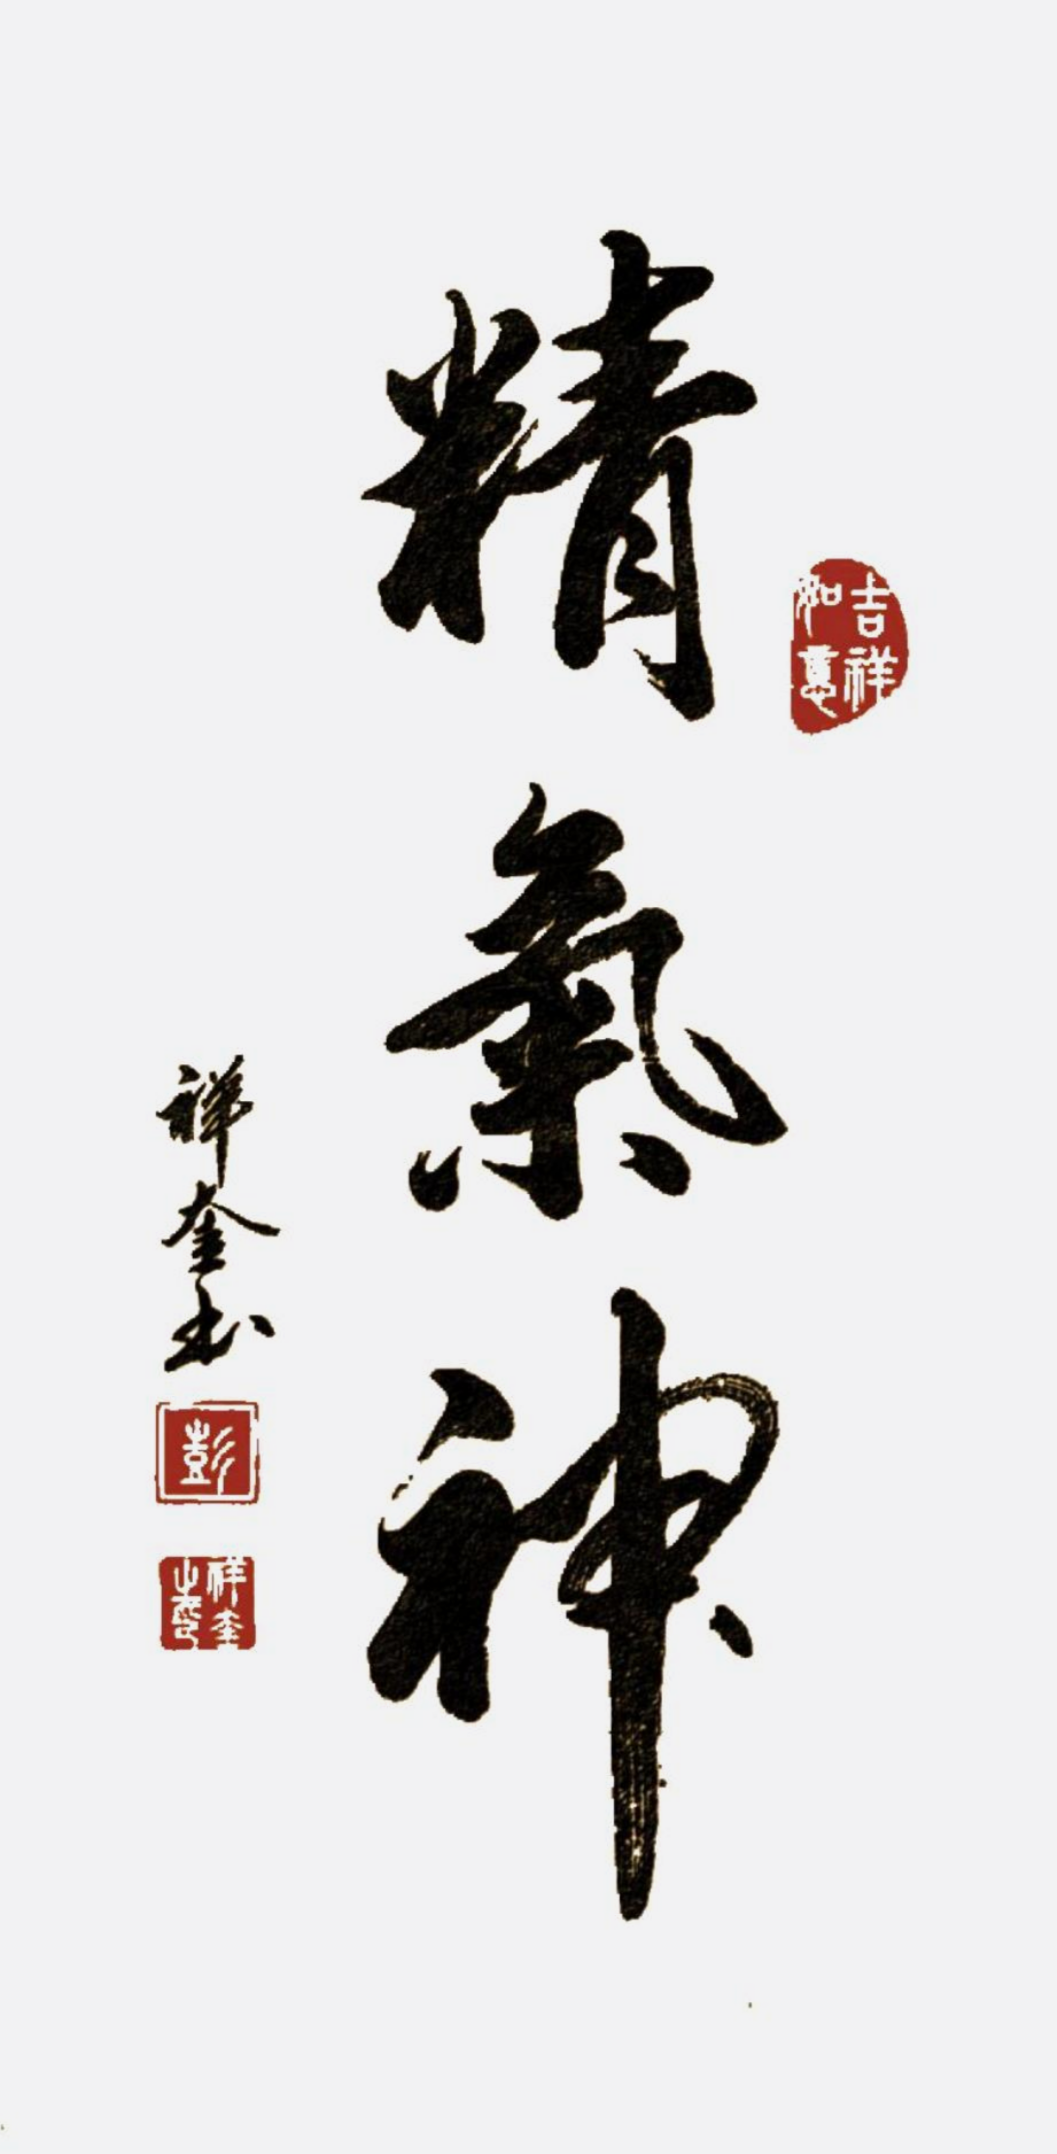 精氣神
吉祥如意
祥奎书
彭
祥奎